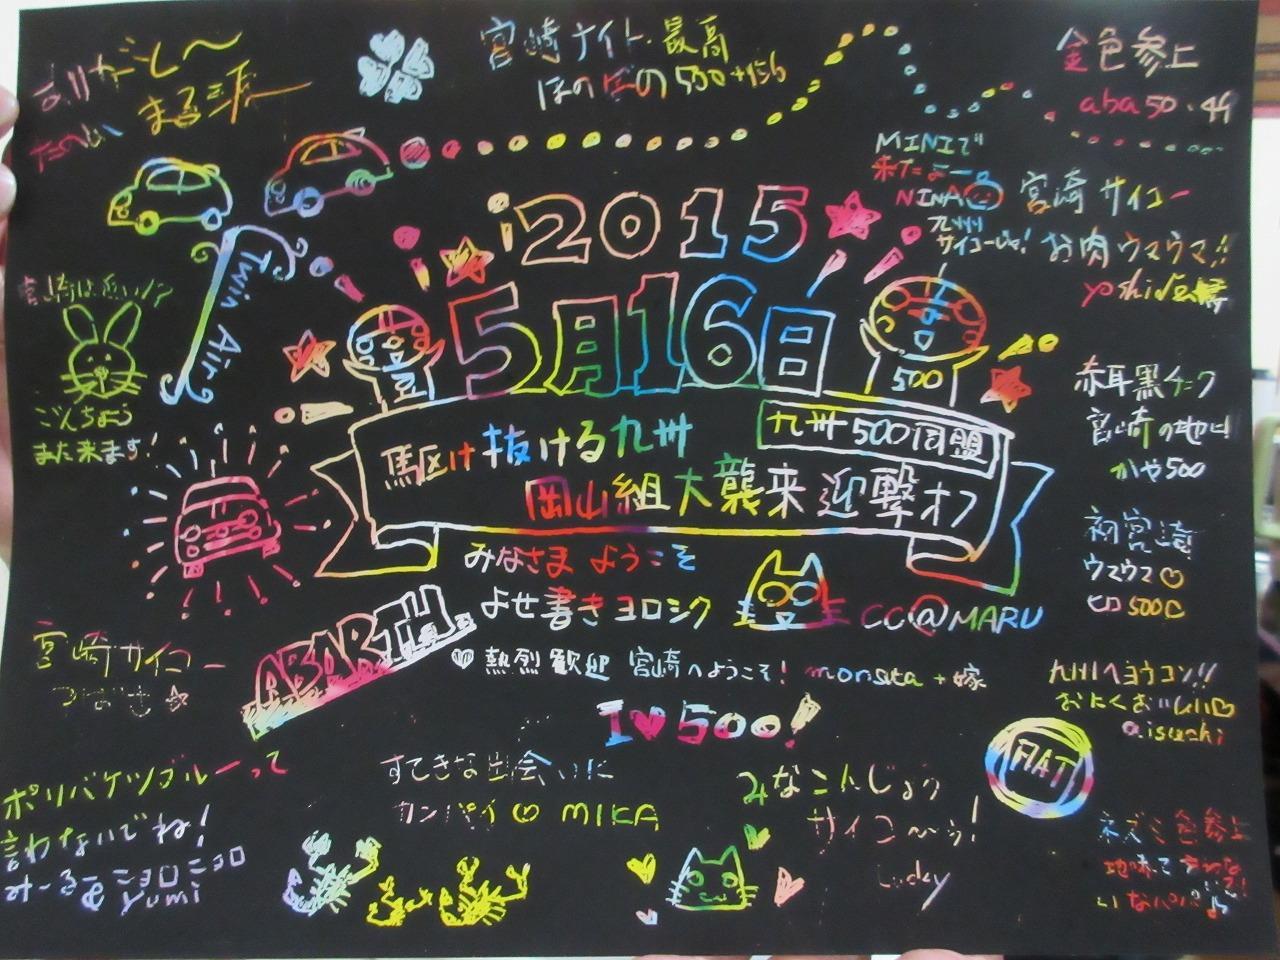 ありがと〜
まる三
宮崎ナイト・最高
ほのぼの500+
金色参上
aba50・44
MINIで
来たよー
NINA
九州
サイコーじゃ!
宮崎サイコー
お肉ウマウマ!!
yoshi
2015
5月16日
Twin Air
500
駆け抜ける九州
九州500同盟
岡山組大襲来迎撃オフ
みなさま ようこそ
よせ書きヨロシク
CC@MARU
熱烈歓迎 宮崎へようこそ! monsuta+嫁
I♥500!
宮崎は近い!?
ごんちょう
また来ます!
赤耳黒チンク
宮崎の地に
かや500
初宮崎
ウマウマ♡
ヒロ500C
ABARTH
宮崎サイコー
つばさ☆
九州へヨウコソ!!
おにくおいしい♡
@isuzuhi
FIAT
ポリバケツブルーって
言わないでね!
みーる@ニョロニョロ
Yumi
すてきな出会いに
カンパイ♡MIKA
みなこんじょう
サイコーっ!
Lucky
ネズミ色参上
地味で
いなパパ